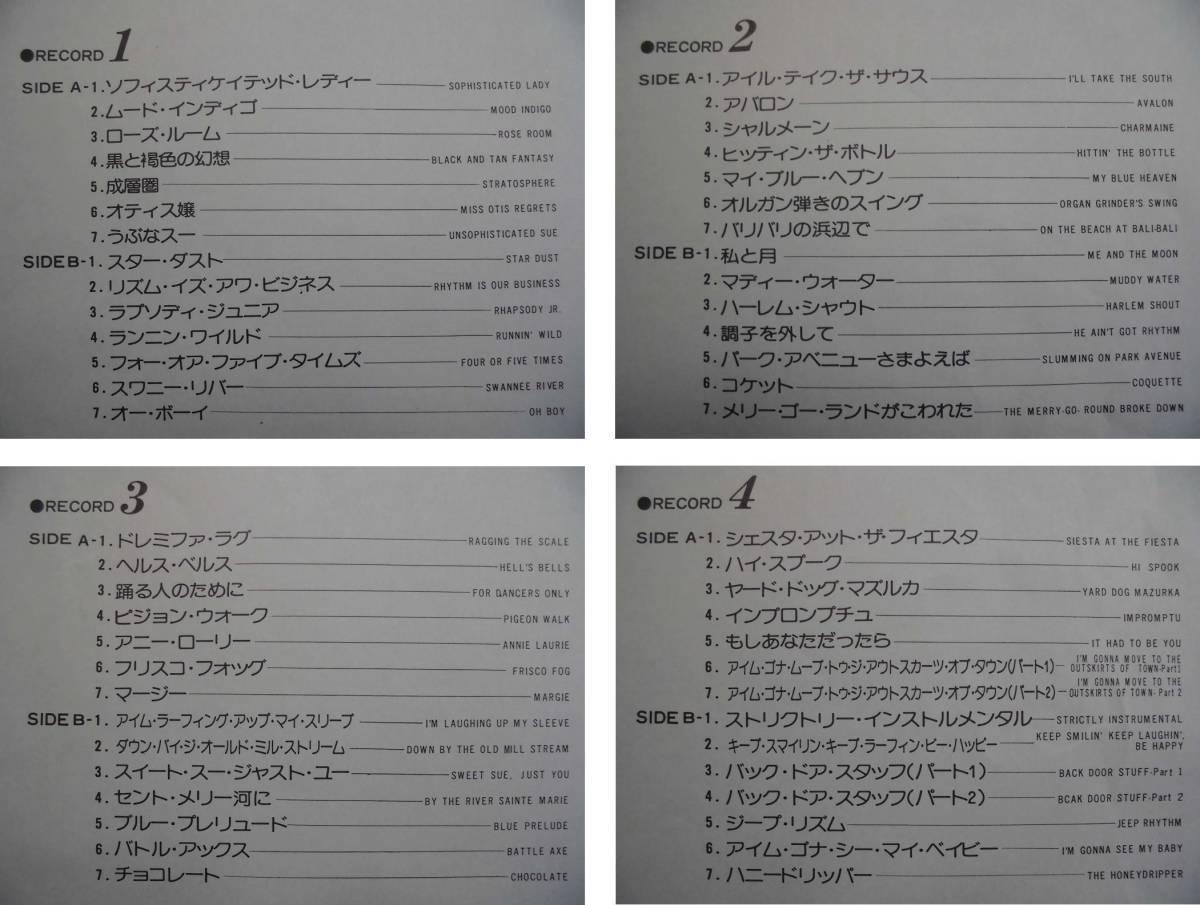 ●RECORD 1
SIDE A-1.ソフィスティケイテッド・レディー SOPHISTICATED LADY
2.ムード・インディゴ MOOD INDIGO
3.ローズ・ルーム ROSE ROOM
4.黒と褐色の幻想 BLACK AND TAN FANTASY
5.成層圏 STRATOSPHERE
6.オティス嬢 MISS OTIS REGRETS
7.うぶなスー UNSOPHISTICATED SUE
SIDE B-1.スター・ダスト STAR DUST
2.リズム・イズ・アワ・ビジネス RHYTHM IS OUR BUSINESS
3.ラプソディ・ジュニア RHAPSODY JR.
4.ランニン・ワイルド RUNNIN' WILD
5.フォー・オア・ファイブ・タイムズ FOUR OR FIVE TIMES
6.スワニー・リバー SWANNEE RIVER
7.オー・ボーイ OH BOY
●RECORD 2
SIDE A-1.アイル・テイク・ザ・サウス I'LL TAKE THE SOUTH
2.アバロン AVALON
3.シャルメーン CHARMAINE
4.ヒッティン・ザ・ボトル HITTIN' THE BOTTLE
5.マイ・ブルー・ヘブン MY BLUE HEAVEN
6.オルガン弾きのスイング ORGAN GRINDER'S SWING
7.バリバリの浜辺で ON THE BEACH AT BALI-BALI
SIDE B-1.私と月 ME AND THE MOON
2.マディー・ウォーター MUDDY WATER
3.ハーレム・シャウト HARLEM SHOUT
4.調子を外して HE AIN'T GOT RHYTHM
5.パーク・アベニューさまよえば SLUMMING ON PARK AVENUE
6.コケット COQUETTE
7.メリー・ゴー・ランドがこわれた THE MERRY-GO-ROUND BROKE DOWN
●RECORD 3
SIDE A-1.ドレミファ・ラグ RAGGING THE SCALE
2.ヘルス・ベルス HELL'S BELLS
3.踊る人のために FOR DANCERS ONLY
4.ピジョン・ウォーク PIGEON WALK
5.アニー・ローリー ANNIE LAURIE
6.フリスコ・フォッグ FRISCO FOG
7.マージー MARGIE
SIDE B-1.アイム・ラーフィング・アップ・マイ・スリーブ I'M LAUGHING UP MY SLEEVE
2.ダウン・バイ・ジ・オールド・ミル・ストリーム DOWN BY THE OLD MILL STREAM
3.スイート・スー・ジャスト・ユー SWEET SUE, JUST YOU
4.セント・メリー河に BY THE RIVER SAINTE MARIE
5.ブルー・プレリュード BLUE PRELUDE
6.バトル・アックス BATTLE AXE
7.チョコレート CHOCOLATE
●RECORD 4
SIDE A-1.シェスタ・アット・ザ・フィエスタ SIESTA AT THE FIESTA
2.ハイ・スプーク HI SPOOK
3.ヤード・ドッグ・マズルカ YARD DOG MAZURKA
4.インプロンプチュ IMPROMPTU
5.もしあなただったら IT HAD TO BE YOU
6.アイム・ゴナ・ムーブ・トゥ・ジ・アウトスカーツ・オブ・タウン(パート1) I'M GONNA MOVE TO THE
OUTSKIRTS OF TOWN-Part1
7.アイム・ゴナ・ムーブ・トゥ・ジ・アウトスカーツ・オブ・タウン(パート2) I'M GONNA MOVE TO THE
OUTSKIRTS OF TOWN-Part 2
SIDE B-1.ストリクトリー・インストルメンタル STRICTLY INSTRUMENTAL
2.キープ・スマイリン・キープ・ラーフィン・ビー・ハッピー KEEP SMILIN' KEEP LAUGHIN',
BE HAPPY
3.バック・ドア・スタッフ(パート1) BACK DOOR STUFF-Part 1
4.バック・ドア・スタッフ(パート2) BCAK DOOR STUFF-Part 2
5.ジープ・リズム JEEP RHYTHM
6.アイム・ゴナ・シー・マイ・ベイビー I'M GONNA SEE MY BABY
7.ハニードリッパー THE HONEYDRIPPER